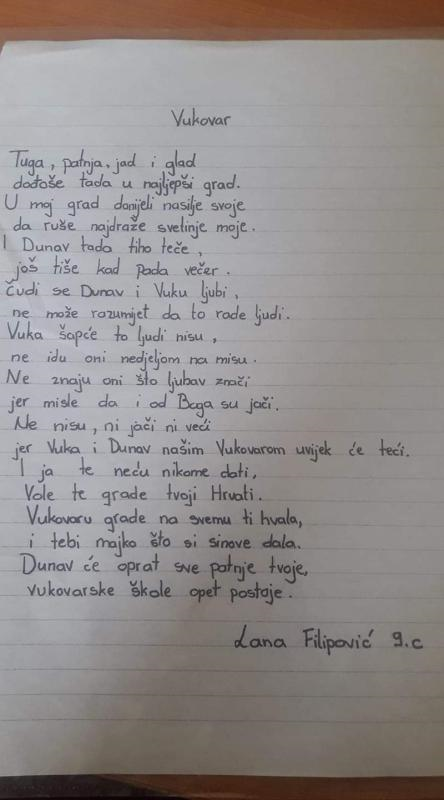 Vukovar
Tuga, patnja, jad i glad
dođoše tada u najljepši grad.
U moj grad donijeli nasilje svoje
da ruše najdraže svetinje moje.
I Dunav tada tiho teče,
još tiše kad pada večer.
Čudi se Dunav i Vuku ljubi,
ne može razumjet da to rade ljudi.
Vuka šapće to ljudi nisu,
ne idu oni nedjeljom na misu.
Ne znaju oni što ljubav znači
jer misle da i od Boga su jači.
Ne nisu, ni jači ni veći
jer Vuka i Dunav našim Vukovarom uvijek će teći.
I ja te neću nikome dati,
Vole te grade tvoji Hrvati.
Vukovaru grade na svemu ti hvala,
i tebi majko što si sinove dala.
Dunav će oprat sve patnje tvoje,
vukovarske škole opet postoje.
Lana Filipović 9.c